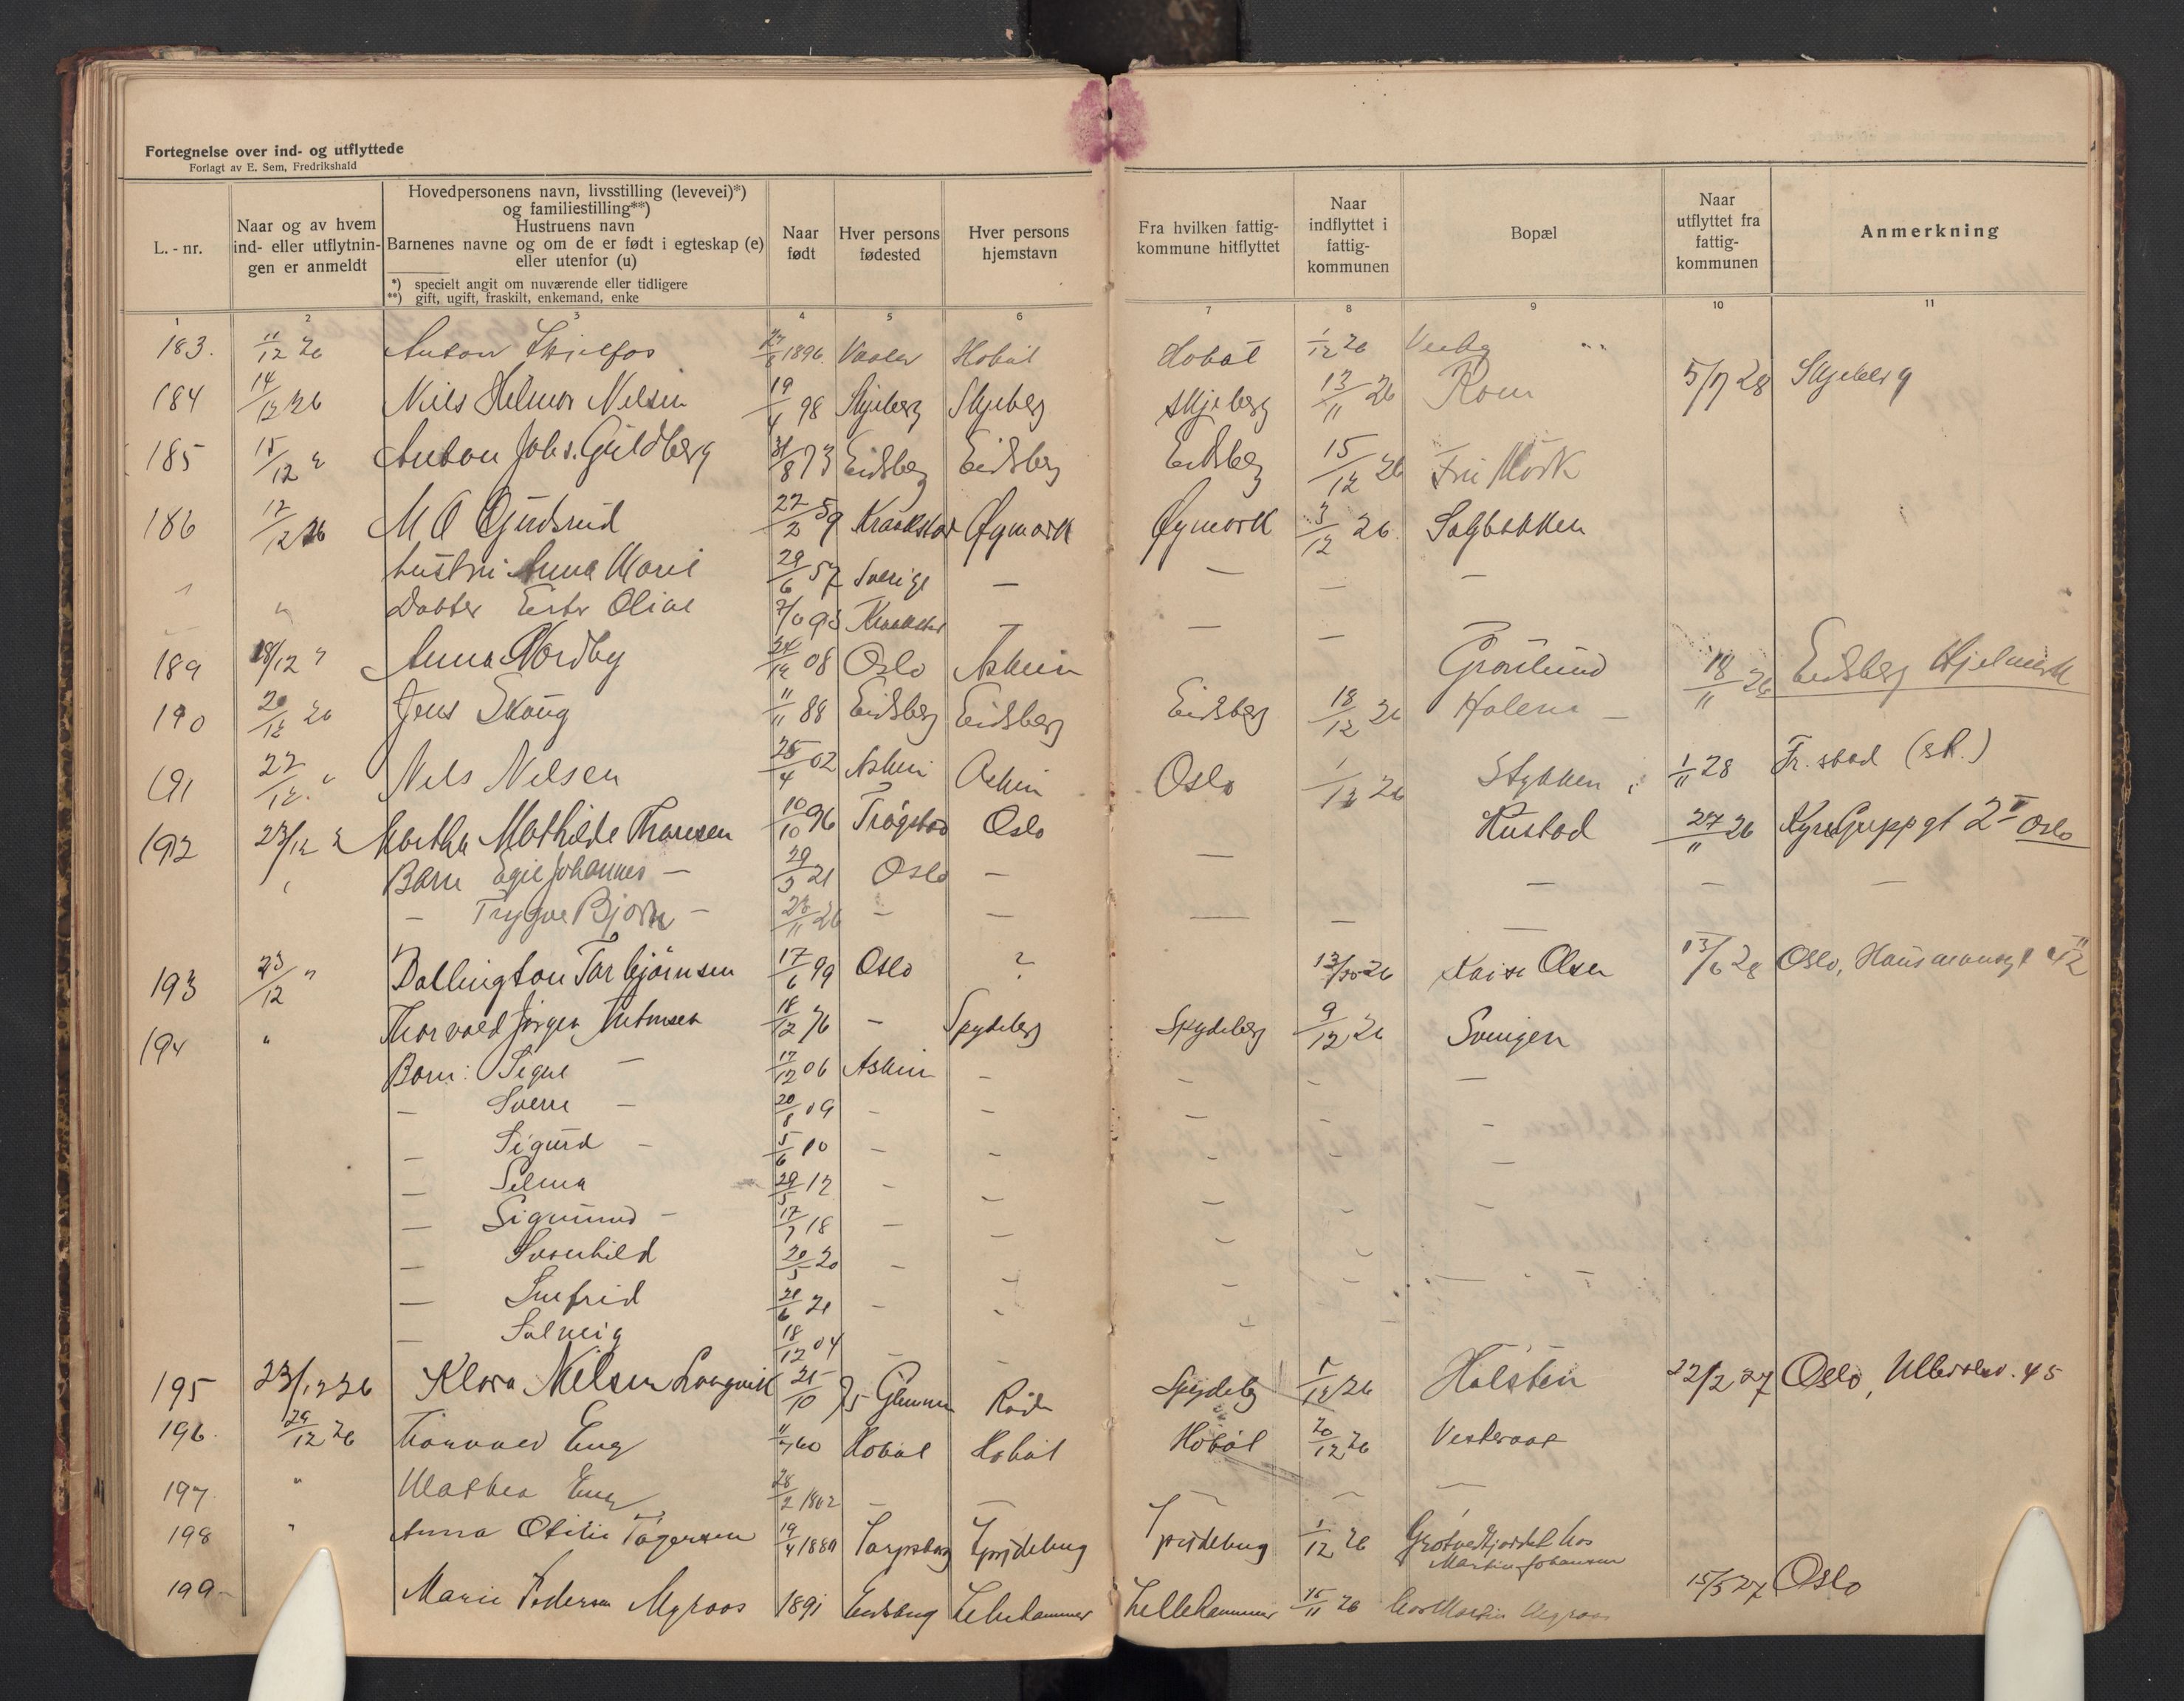 Fortegnelse over ind- og utflyttede
Forlagt av E. Sem, Fredrikshald
L. - nr.
Naar og av hvem
ind- eller utflytnin-
gen er anmeldt
Hovedpersonens navn, livsstilling (levevei)*)
og familiestilling**)
Hustruens navn
Barnenes navne og om de er født i egteskap (e)
eller utenfor (u)
*) specielt angit om nuværende eller tidligere
**) gift, ugift, fraskilt, enkemand, enke
Naar
født
Hver persons
fødested
Hver persons
hjemstavn
Fra hvilken fattig-
kommune hitflyttet
Naar
indflyttet i
fattig-
kommunen
Bopæl
Naar
utflyttet fra
fattig-
kommunen
Anmerkning
1 2 3 4 5 6 7 8 9 10 11
183. 11/12 26 Anton 1896. Vaaler Hobøl Hobøl 1/12 26
184 14/12 26 Nils Helmer Nilsen 19/4 98 Skjeberg Skjeberg Skjeberg 13/11 26 Rom 5/7 28 Skjeberg
185 15/12 " Anton Johs. Guldberg 31/8 73 Eidsberg Eidsberg Eidsberg 15/12 26 Mørk
186 17/12 26 M O Gudsrud 27/2 59 Kraakstad Øymark Øymark 3/12 26 Sagbakken
" " hustru Anna Marie 29/6 57 Sverige — — — —
— " Datter Ester Olive 93 Kraakstad — — — —
189 18/12 " Anna Nordby 24/12 08 Oslo Askim Grønlund 18/11 26 Eidsberg Hjelmark
190 20/12 26 Jens Skaug 11/11 88 Eidsberg Eidsberg Eidsberg 18/12 26 Holene —
191 22/12 " Nils Nilsen 25/4 02 Askim Askim Oslo 1/12 26 Stykken 1/11 28 Fr.stad (sk.)
192 23/12 " Martha Mathilde Thansen 10/10 96 Trøgstad Oslo — Hustad 27/11 26 2 Oslo
" Barn Egil Johannes — 29/3 21 Oslo — — — —
— Trygve Bjørn — 23/11 26 — — — — —
193 23/12 " Dallington Torbjørnsen 17/6 99 Oslo ? 13/10 26 Olsen 13/6 28 Oslo, Hausmannsgt
194 " Thorvald Jørgen 18/12 76 — Spydeberg Spydeberg 9/12 26 Svingen
Barn: Signe — 17/12 06 Askim — — — —
— Sverre — 20/8 09 — — — — —
— Sigurd — 5/6 10 — — — — —
— Selma 29/5 12 — — — — —
— Sigmund — 17/7 18 — — — —
— Svanhild 20/5 20 — — — — —
— 21/6 21 — — —
— Solveig 18/12 04 — —
195 23/12 26 Klara Nilsen 25/10 75 Glemmen Råde Spydeberg 1/12 26 Holstein 22/2 27 Oslo, 45
196. 29/12 26 Eng 60 Hobøl Hobøl Hobøl 20/12 26 Vesteraas
197 " Mathea Eng 28/2 1862 — — — — —
198 " Anna Otilie 19/4 Sarpsborg Spydeberg Spydeberg 1/12 26 hos
Martin Johansen
199 — Marie Pedersen Myraas 1891 Eidsberg Lillehammer Lillehammer 15/11 26 hos Martin Myraas 15/5 27 Oslo